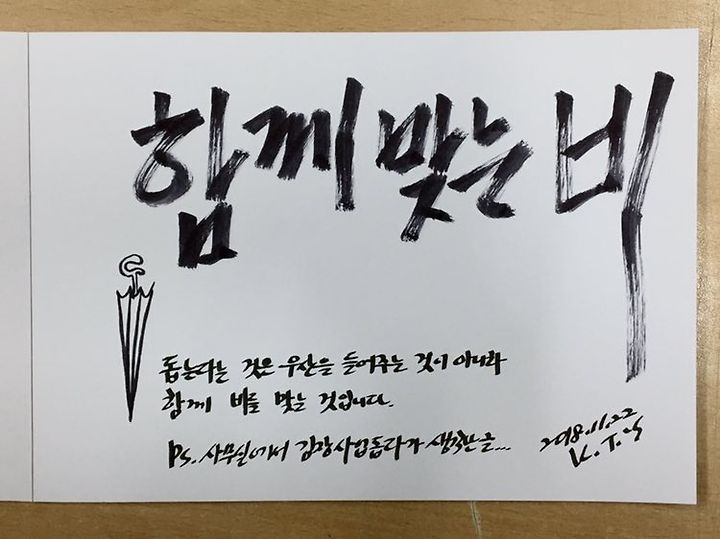 함께 맞는 비
돕는다는 것은 우산을 들어주는 것이 아니라
함께 비를 맞는 것입니다.
Ps. 사무실에서 김장사업돕다가 생각난글...
2018.11.22
K.T.S